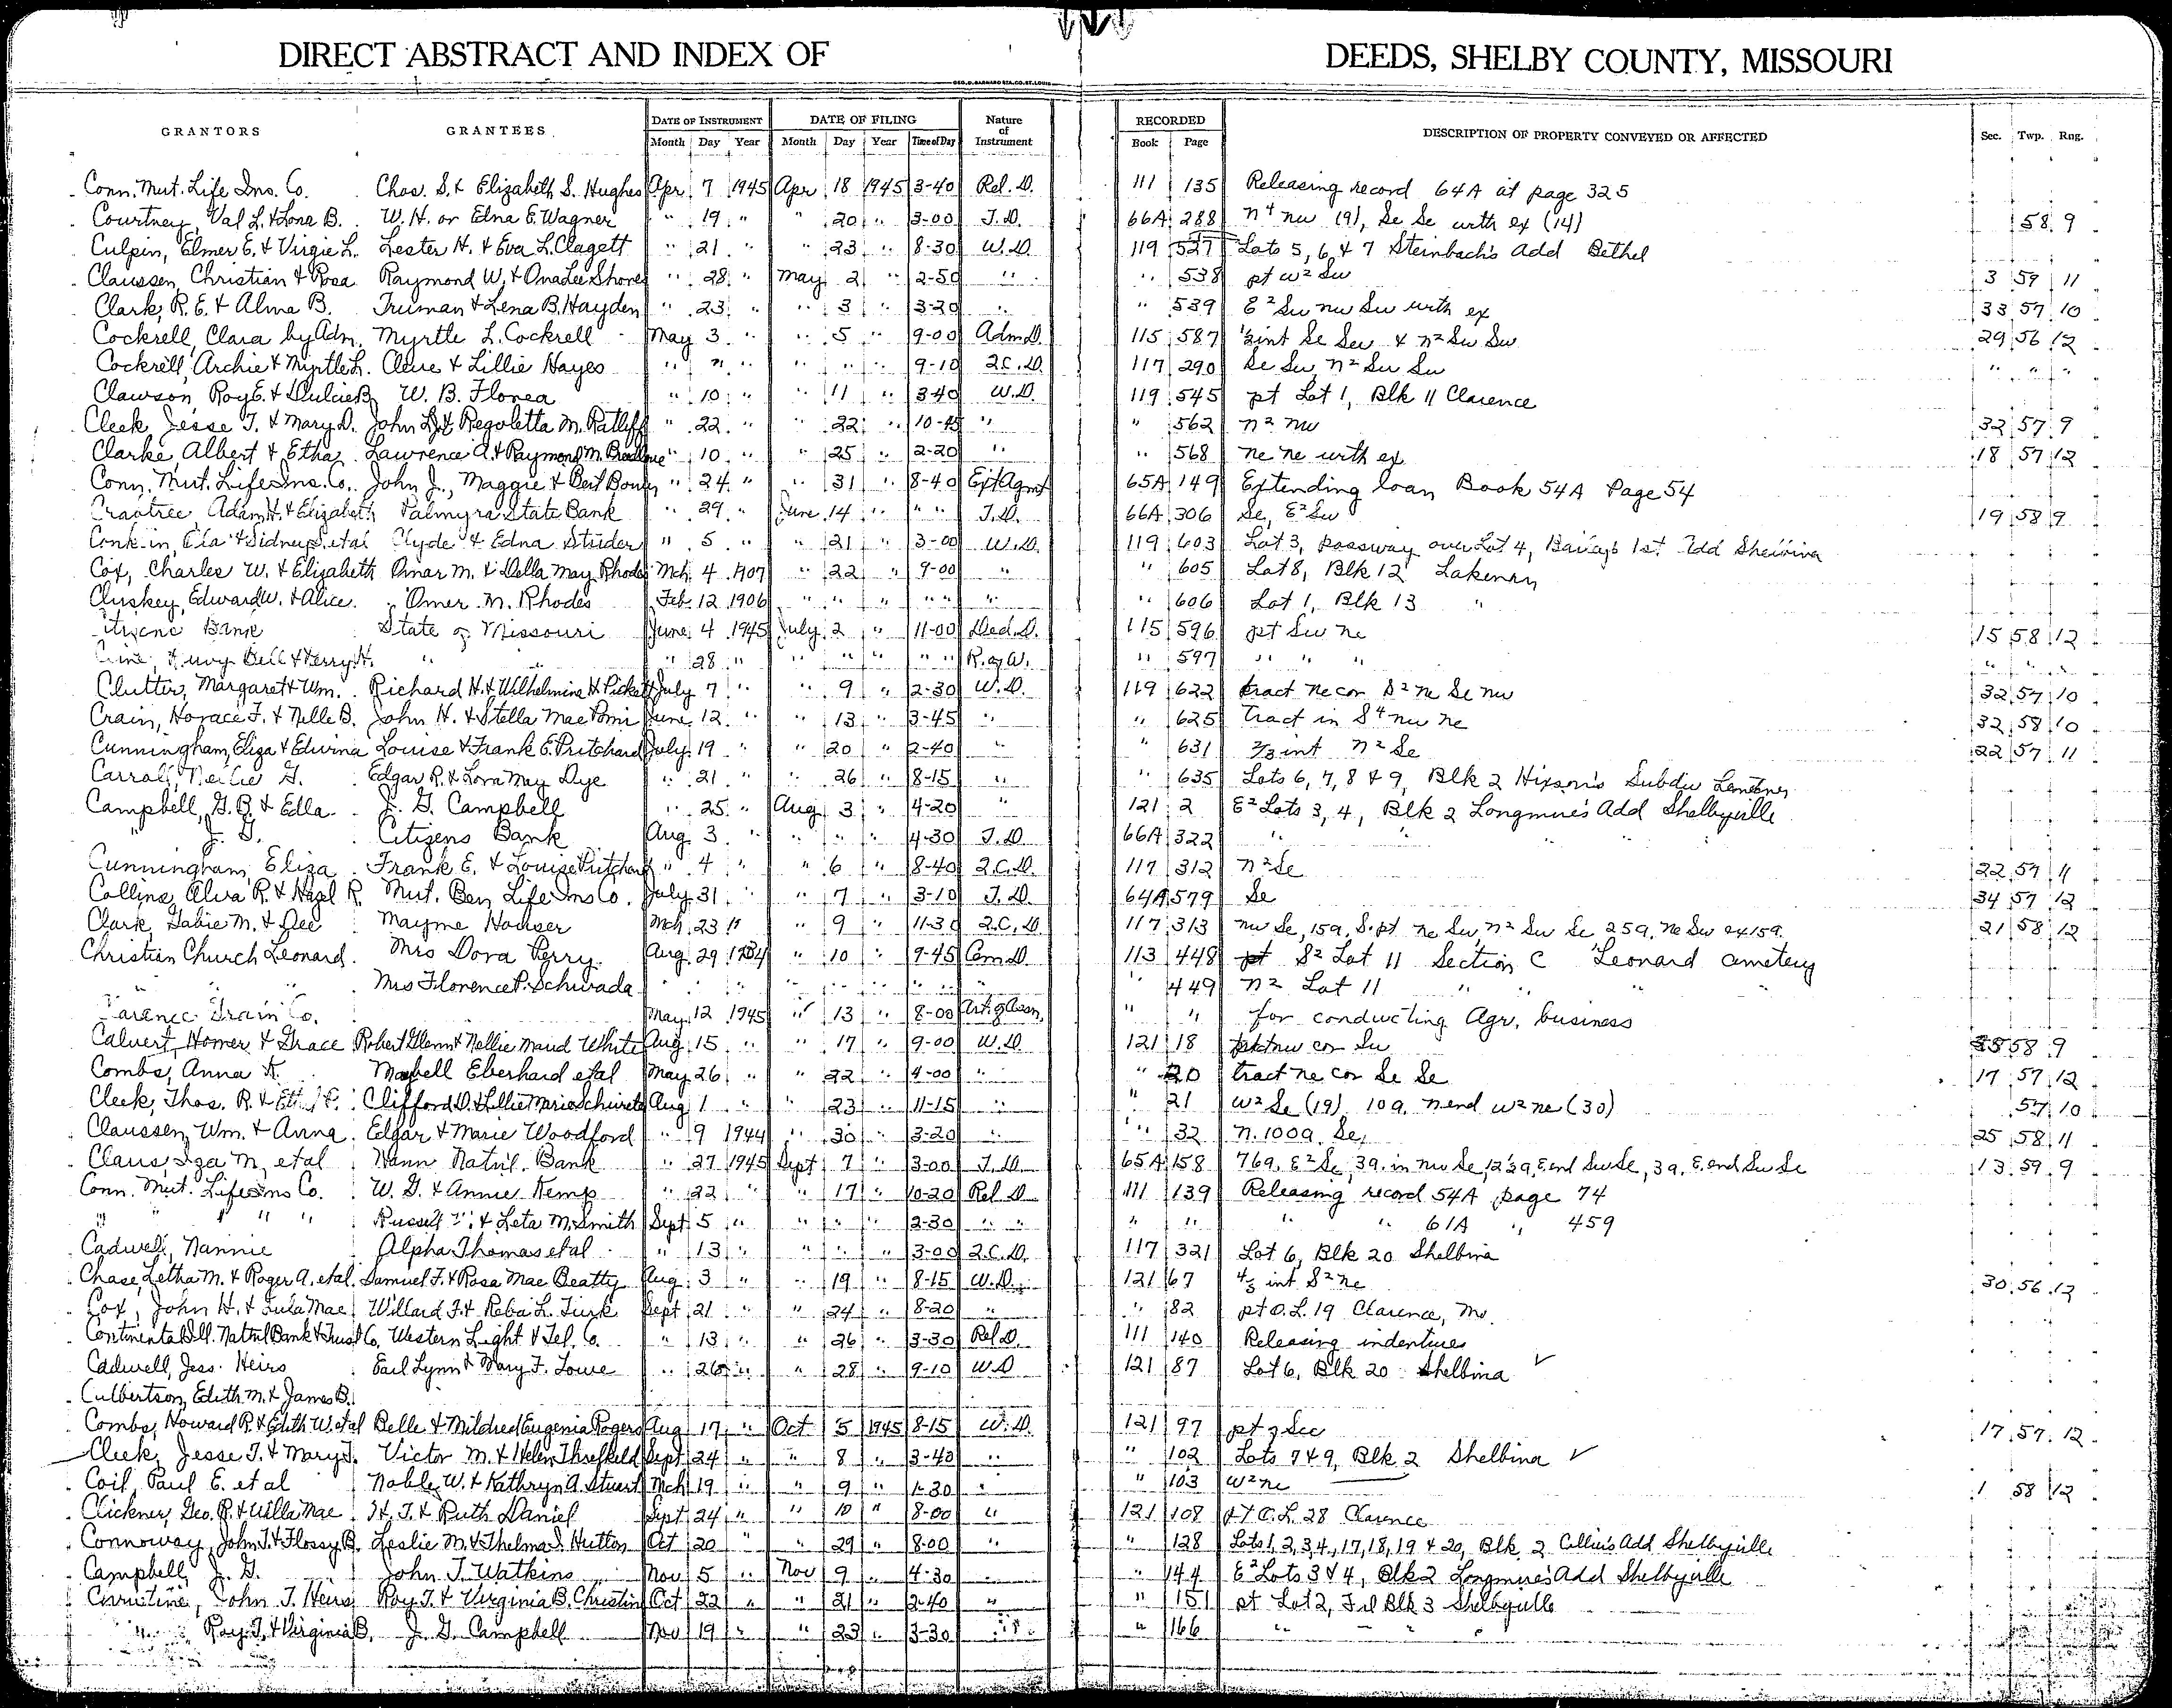 DIRECT ABSTRACT AND INDEX OF DEEDS, SHELBY COUNTY, MISSOURI
GRANTORS GRANTEES DATE OF INSTRUMENT DATE OF FILING Nature of Instrument RECORDED DESCRIPTION OF PROPERTY CONVEYED OR AFFECTED Sec. Twp. Rng.
Month Day Year Month Day Year Time of Day Book Page
Conn. Mut. Life Ins. Co. Chas. S. & Elizabeth S. Hughes Apr 7 1945 Apr 18 1945 3-40 Rel. D. 111 135 Releasing record 64A at page 325
Courtney, Val L. & Lona B. W. H. or Edna E. Wagner " 19 " " 20 " 3-00 T.D. 66A 288 n4 nw (9), Se Se with ex (14) 58 9
Culpin, Elmer E. & Virgie L. Lester H. & Eva L. Clagett " 21 " " 23 " 8-30 W.D. 119 527 Lots 5, 6, & 7 Steinbach's Add Bethel
Claussen, Christian & Rosa Raymond W. & Ona Lee Shores " 28 " May 2 " 2-50 " " 538 pt w2 Sw 3 59 11
Clark, R. E. & Alma B. Truman & Lena B. Hayden " 23 " " 3 " 3-20 " " 539 E2 Sw nw Sw with ex 33 57 10
Cockrell, Clara by Adm. Myrtle L. Cockrell May 3 " " 5 " 9-00 Adm D. 115 587 ½ int Se Sw & n2 Sw Sw 29 56 12
Cockrell, Archie & Myrtle L. Clave & Lillie Hayes " " " " " " 9-10 Q.C.D. 117 290 Se Sw, n2 Sw Sw " " "
Clawson, Roy E. & Dulcie B. W. B. Florea " 10 " " 11 " 3-40 W.D. 119 545 pt Lot 1, Blk 11 Clarence
Cleek, Jesse T. & Mary D. John L. & Regoletta M. Ratliff " 22 " " 22 " 10-45 " " 562 n2 nw 32 57 9
Clarke, Albert & Etha Lawrence A. & Raymond M. " 10 " " 25 " 2-20 " " 568 ne ne with ex 18 57 12
Conn. Mut. Life Ins. Co. John J., Maggie & Bert " 24 " " 31 " 8-40 Ext Agmt 65A 149 Extending loan Book 54A Page 54
Crabtree, Adam H. & Elizabeth Palmyra State Bank " 29 " June 14 " " " T.D. 66A 306 Se, E2 Sw 19 58 9
Clyde & Edna Strider " 5 " " 21 " 3-00 W.D. 119 603 Lot 3, passway over Lot 4, 1st Add Shelbina
Cox, Charles W. & Elizabeth Omar M. & Della May Rhodes Mch 4 1907 " 22 " 9-00 " " 605 Lot 8, Blk 12 Lakenan
Cluskey, Edward W. & Alice Omer M. Rhodes Feb. 12 1906 " " " " " " " 606 Lot 1, Blk 13 "
Bank State of Missouri June 4 1945 July 2 " 11-00 Ded. D. 115 596 pt Sw ne 15 58 12
" " " 28 " " " " " " R. of W. " 597 " " " " " "
Clutter, Margaret & Wm. Richard H. & Wilhelmine H. Pickett July 7 " " 9 " 2-30 W.D. 119 622 tract ne cor S2 ne Se nw 32 57 10
Crain, Horace F. & Nelle B. John H. & Stella Mae June 12 " " 13 " 3-45 " " 625 Tract in S4 nw ne 32 58 10
Cunningham, Eliza & Edwina Louise & Frank E. Pritchard July 19 " " 20 " 2-40 " " 631 ⅔ int n2 Se 22 57 11
Carroll, G. Edgar R. & Lora May Dye " 21 " " 26 " 8-15 " " 635 Lots 6, 7, 8 & 9, Blk 2 Hixson's Subdiv Lentner
Campbell, G. B. & Ella J. G. Campbell " 25 " Aug 3 " 4-20 " 121 2 E2 Lots 3, 4, Blk 2 Longmire's Add Shelbyville
" J. G. Citizens Bank Aug 3 " " " " 4-30 T.D. 66A 322 " " " "
Cunningham, Eliza Frank E. & Louise Pritchard " 4 " " 6 " 8-40 Q.C.D. 117 312 n2 Se 22 57 11
Collins, Alva R. & Hazel R. Mut. Ben Life Ins Co. July 31 " " 7 " 3-10 T.D. 64A 579 Se 34 57 12
Clark, Gabie M. & Dee Mayme Houser Mch 23 " " 9 " 11-30 Q.C.D. 117 313 nw Se, 15a. S. pt ne Sw, n2 Sw Se 25a. ne Sw ex 15a. 21 58 12
Christian Church Leonard Mrs Dora Perry Aug 29 1934 " 10 " 9-45 Cem D. 113 448 S2 Lot 11 Section C Leonard Cemetery
" " " Mrs Florence P. Schwada " " " " " " " " " 449 n2 Lot 11 " " " "
Clarence Grain Co. May 12 1945 " 13 " 8-00 Art. of Assn. " " for conducting Agr. business
Calvert, Homer & Grace Robert Glenn & Nellie Maud White Aug 15 " " 17 " 9-00 W.D. 121 18 nw cor Sw 58 9
Combs, Anna K. Maybell Eberhard etal May 26 " " 22 " 4-00 " " 20 tract ne cor Se Se 17 57 12
Cleek, Thos. R. & Clifford D. & Lillie Marie Aug 1 " " 23 " 11-15 " " 21 W2 Se (19) 10a. n end w2 ne (30) 57 10
Claussen, Wm. & Anna Edgar & Marie Woodford " 9 1944 " 30 " 3-20 " " 32 n. 100a. Se, 25 58 11
Claus, Iza M, etal Hann Nat'l. Bank " 27 1945 Sept 7 " 3-00 T.D. 65A 158 76a. E2 Se, 3a. in nw Se, E. end Sw Se, 3a. E. end Sw Se 13 59 9
Conn. Mut. Life Ins Co. W. G. & Annie Kemp " 22 " " 17 " 10-20 Rel D. 111 139 Releasing record 54A page 74
" " " " Russell & Leta M. Smith Sept 5 " " " " 2-30 " " " " " " 61A " 459
Cadwell, Nannie Alpha Thomas etal " 13 " " " " 3-00 Q.C.D. 117 321 Lot 6, Blk 20 Shelbina
Chase, Letha M. & Roger A. etal. Samuel F. & Rosa Mae Beatty Aug 3 " " 19 " 8-15 W.D. 121 67 ⅘ int S2 ne 30 56 12
Cox, John H. & Lula Mae Willard F. & Reba L. Turk Sept 21 " " 24 " 8-20 " " 82 pt O.L. 19 Clarence, Mo.
Continental Ill. Nat'l Bank & Trust Co. Western Light & Tel. Co. " 13 " " 26 " 3-30 Rel D. 111 140 Releasing indentures
Cadwell, Jess. Heirs Earl Lynn & Mary F. Lowe " 26 " " 28 " 9-10 W.D 121 87 Lot 6, Blk 20 Shelbina ✓
Culbertson, Edith M. & James B.
Combs, Howard R. & Edith W. etal Belle & Mildred Eugenia Rogers Aug 17 " Oct 5 1945 8-15 W.D. 121 97 pt of Sec 17 57 12
Cleek, Jesse T. & Mary D. Victor M. & Helen Threlkeld Sept 24 " " 8 " 3-40 " " 102 Lots 7 & 9, Blk 2 Shelbina ✓
Coil, Paul E. et al Noble W. & Kathryn A. Stuart Mch 19 " " 9 " 1-30 " " 103 W2 ne 1 58 12
Clickner, Geo. R. & Willa Mae H. T. & Ruth Daniel Sept 24 " " 10 " 8-00 " 121 108 pt O.L. 28 Clarence
Connoway, John T. & Flossy B. Leslie M. & Thelma D. Hutton Oct 20 " " 29 " 8-00 " " 128 Lots 1, 2, 3, 4, 17, 18, 19 & 20, Blk 2 Collier's Add Shelbyville
Campbell, J. G. John T. Watkins Nov 5 " Nov 9 " 4-30 " " 144 E2 Lots 3 & 4, Blk 2 Longmire's Add Shelbyville
Christine, John T. Heirs Roy T. & Virginia B. Christine Oct 22 " " 21 " 2-40 " " 151 pt Lot 2, Blk 3 Shelbyville
" Roy T. & Virginia B. J. G. Campbell Nov 19 " " 23 " 3-30 " " 166 " " "